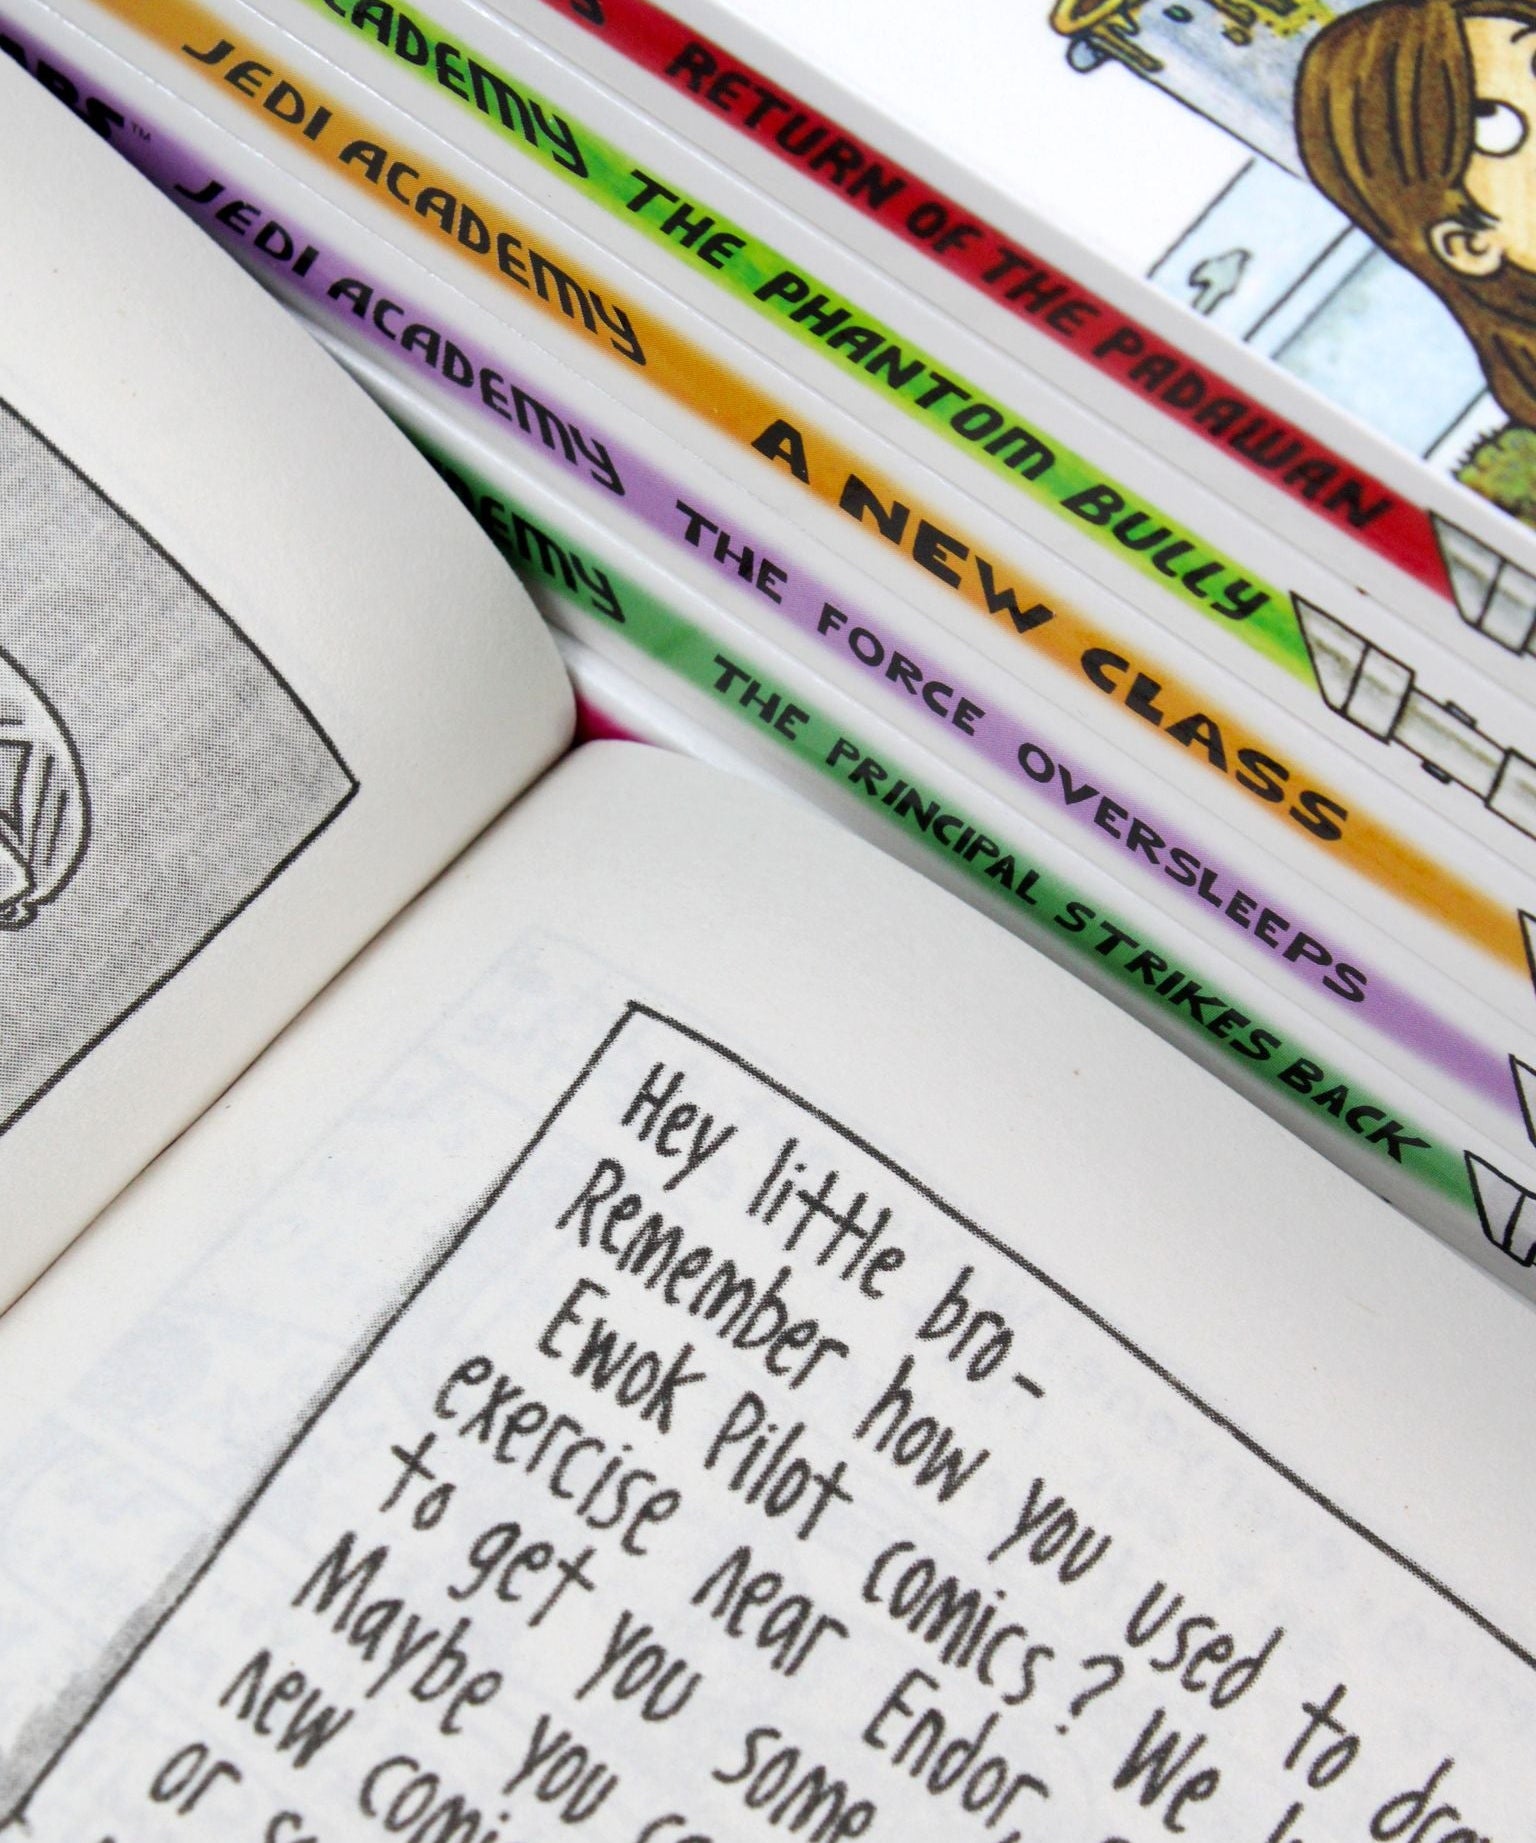 RETURN OF THE PADAWAN
THE PHANTOM BULLY
JEDI ACADEMY A NEW CLASS
™ JEDI ACADEMY THE FORCE OVERSLEEPS
THE PRINCIPAL STRIKES BACK
Hey little bro-
Remember how you used to
Ewok Pilot comics? We
exercise near Endor,
to get you some
Maybe you
new
or